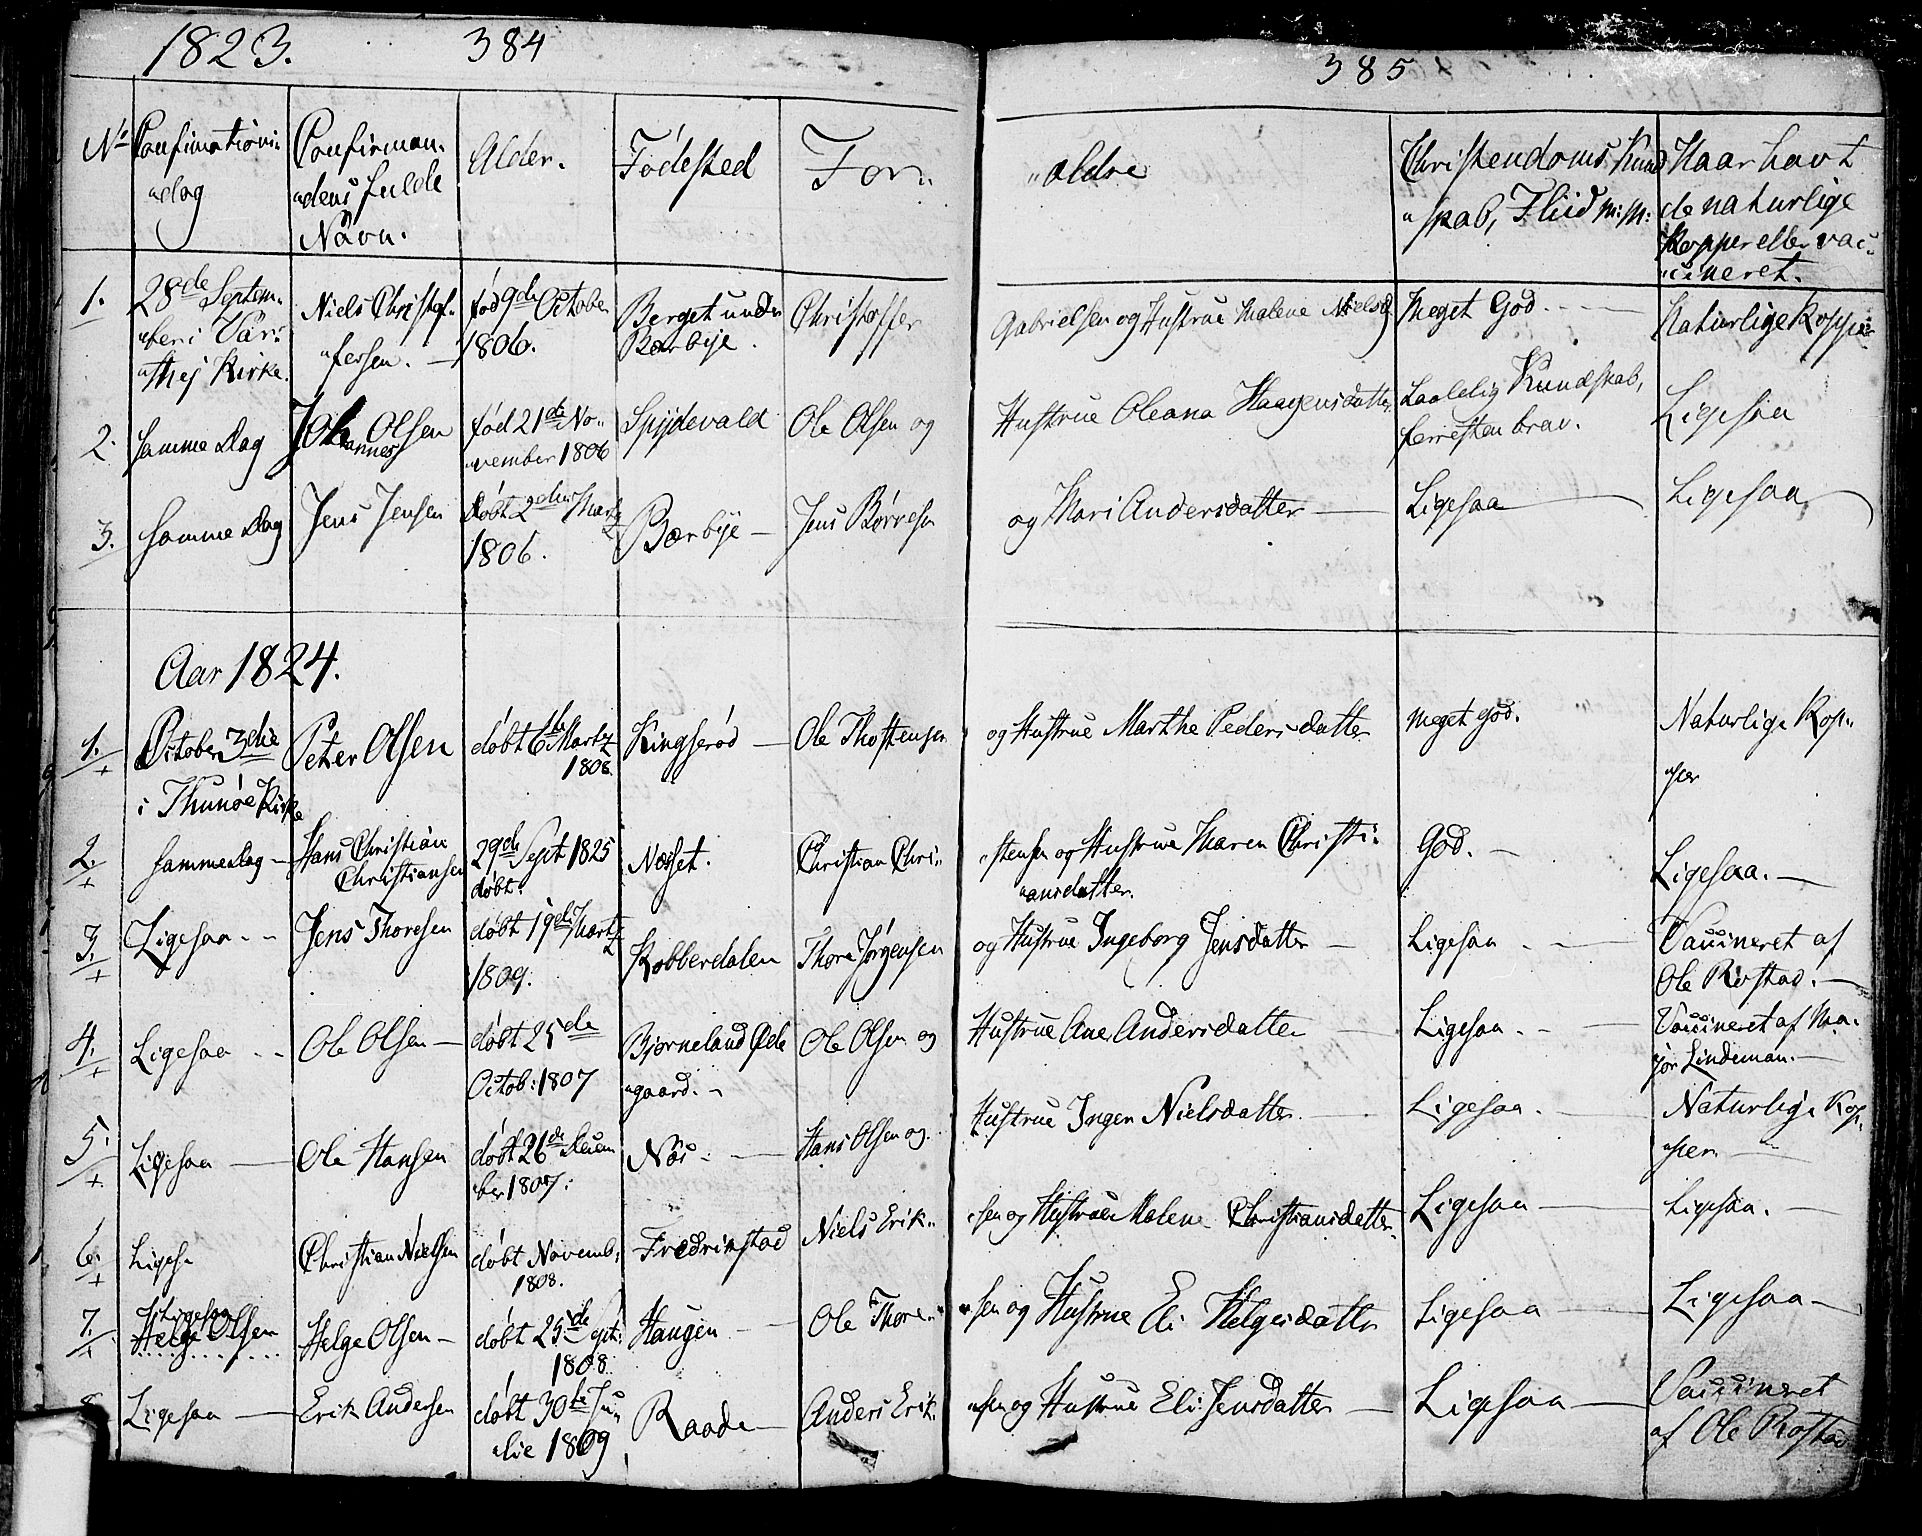 1823. 384 385
No Confirmations- dag
Confirman- dens fulde Navn.
Alder.
Fødested
For- ældre
Christendoms Kund- skab, Fliid m: m:
Haar havt de naturlige Kopper eller vac- cineret.
1. 28de Septem- ber i Kirke.
Niels Christof- fersen. —
fød 9de October 1806.
Berget under Bærbye.
Christoffer Gabrielsen og Hustrue Malene Nielsd
Meget God. - - -
Naturlige Kopper
2. Samme Dag
Johannes Olsen
fød 21de No- vember 1806
Spydevald
Ole Olsen og Hustrue Oleana Haagensdatter
Kundskab, forresten brav.
Ligesaa
3. Samme Dag
Jens Jensen
døbt 2den Martz 1806.
Bærbye —
Jens Børresen og Mari Andersdatter —
Ligesaa
Ligesaa
Aar 1824.
1. October 3die i Thunøe Kirke
Peter Olsen
døbt 6te Martz 1808.
Kingserød —
Ole Thostensen og Hustrue Marthe Pedersdatter
meget god.
Naturlige Kop- per
2. Samme Dag —
Hans Christian Christiansen
29de Sept 1825 døbt.
Næset.
Christian Chri- stensen og Hustrue Maren Christi- ansdatter.
God. —
Ligesaa. —
3. Ligesaa - -
Jens Thoresen
døbt 19de Martz 1809.
Robberdalen
Thore Jørgensen og Hustrue Ingeborg Jensdatter —
Ligesaa - —
Vaccineret af Ole Rostad. —
4. Ligesaa - -
Ole Olsen —
døbt 25de Octob: 1807
Bjørneland Øde gaard. -
Ole Olsen og Hustrue Ane Andersdatter —
Ligesaa. - —
Vaccineret af Ma- jor Lindeman. —
5. Ligesaa —
Ole Hansen
døbt 26de Decem ber 1807.
Nøs - —
Hans Olsen og Hustrue Inger Nielsdatter. —
Ligesaa. —
Naturlige Kop- per —
6. Ligesa
Christian Nielsen
døbt Novemb: 1808.
Fredrikstad
Niels Erik- sen og Hustrue Malene Christiansdatter
Ligesaa —
Ligesaa. —
7. Ligesaa Helge Olsen
Helge Olsen —
døbt 25de Sept: 1808
Haugen - —
Ole Thore- sen og Hustrue Eli Helgesdatter
Ligesaa —
Ligesaa —
8. Ligesaa —
Erik Andersen
døbt 30te Ju- lie 1809
Raade —
Anders Erik- sen og Hustrue Eli Jensdatter —
Ligesaa —
Vaccineret af Ole Rostad